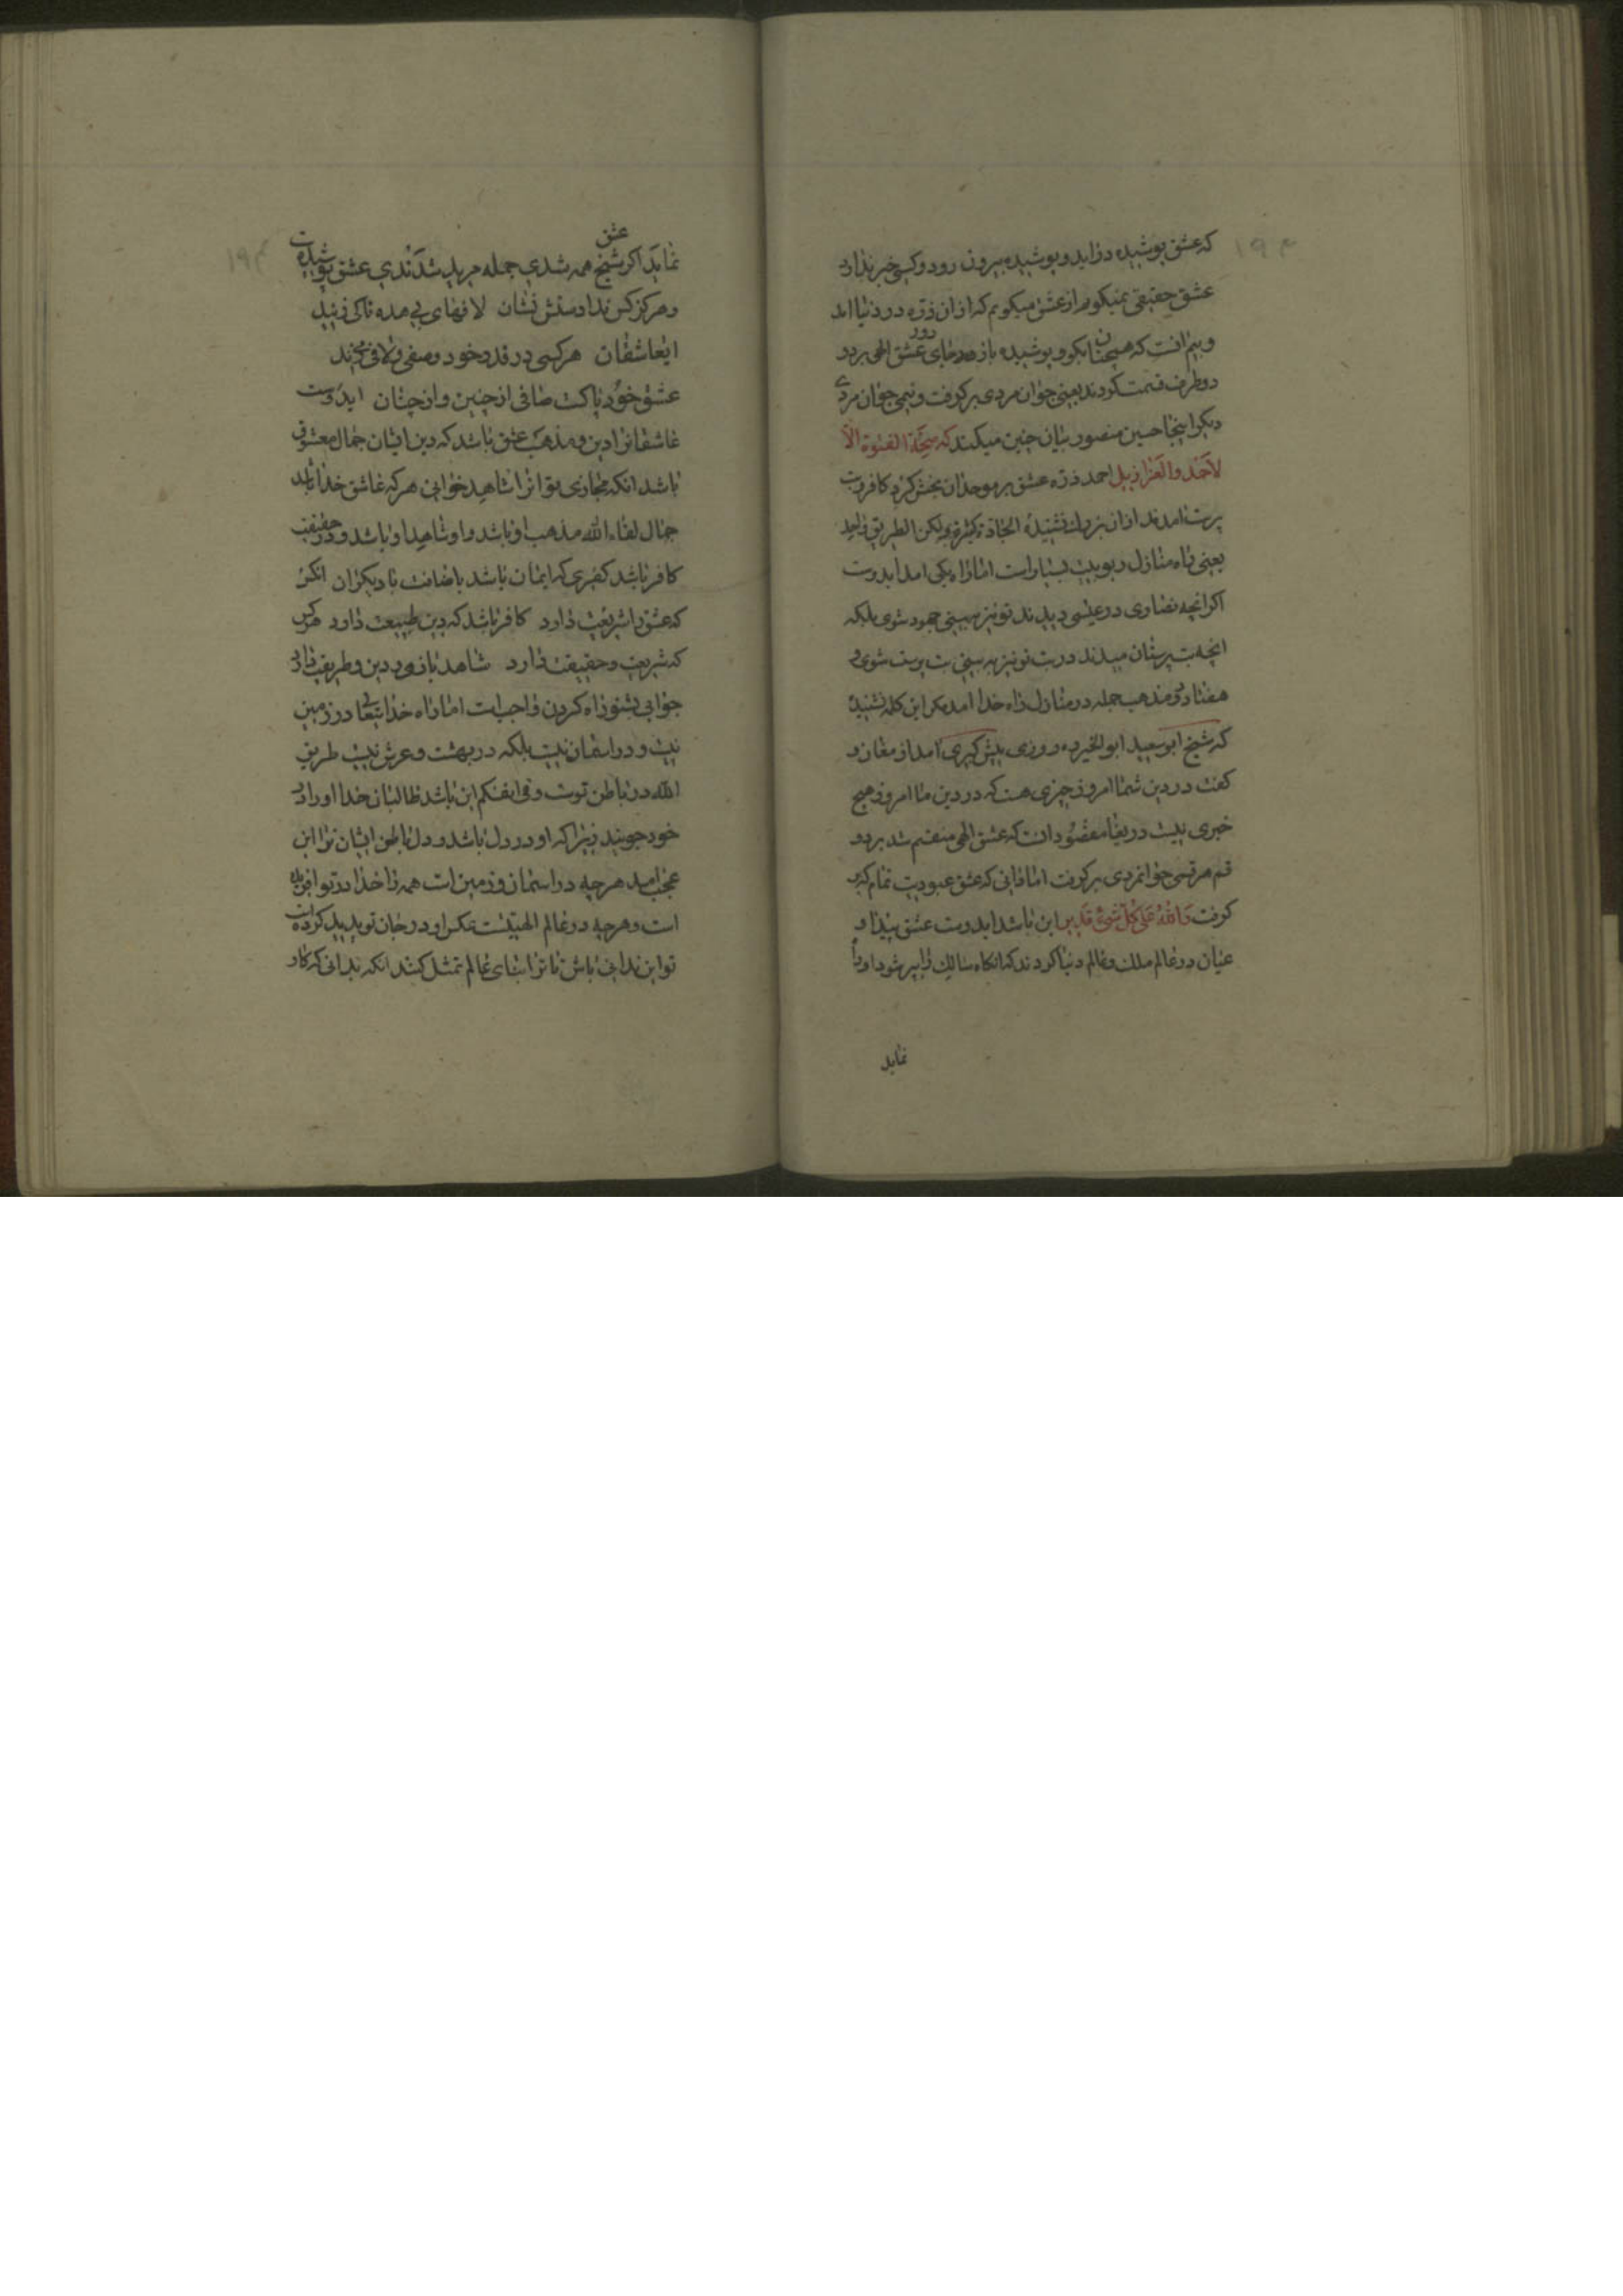 که عشق پوشیده درآید و پوشیده بیرون رود و کسی خبر ندارد
عشق حقیقی نمیگویم از عشق میگویم که از آن ذره در دنیا آمد
و بیم آنست که همچنان بکر و پوشیده باز جای رود عشق الهی بر دو
دو طرف قسمت کردند یعنی جوان مردی برگرفت و نیمی جوان مردی
دیگر اینجا حسین منصور بیان چنین میکند که صحّة الفتوة الّا
لأحمد والعزازیل احمد ذره عشق بر موحدان بخش کرد کافر و بت
پرست آمدند از آن بزرگ نشنیدهٔ الجادة کثیرة ولکن الطریق واحد
یعنی راه منازل ربوبیت بسیار است اما راه یکی آمد ایدوست
اگر آنچه نصاری در عیسی دیدند تو نیز ببینی جهود شوی بلکه
آنچه بت پرستان دیدند در بت تو نیز به بینی بت پرست شوی و
هفتاد و دو مذهب جمله در منازل راه خدا آمد مگر این کلمه نشنیدهٔ
که شیخ ابو سعید ابو الخیر ره روزی پیش گبری آمد از مغان و
گفت در دین شما امروز چیزی هست که در دین ما امروز هیچ
خبری نیست دریغا مقصود آنست که عشق الهی منقسم شد بر دو
قسم هر قسمی جوانمردی برگرفت اما دانی که عشق عبودیت تمام که بر
گرفت وَاللّهُ عَلی کُلّ شَیءٍ قَدیر این باشد ایدوست عشق پیدا و
عیان در عالم ملک و عالم دنیا کردند که آنگاه سالک را پیر شود او را
نماید
عشق
نماید اگر شیخ همه شدی جمله مرید شدندی عشق پوشیده است
و هرگز کس ندادستش نشان لافهای بیهده تا کی زنید
ایعاشقان هر کسی در قدر خود وصفی و لافی میزند
عشق خود پاکست صافی از چنین و از چنان ایدوست
عاشقانرا دین و مذهب عشق باشد که دین ایشان جمال معشوق
باشد آنکه مجازی بود تو او را شاهد خوانی هر که عاشق خدا باشد
جمال لقاء الله مذهب او باشد و او شاهد او باشد و در حقیقت
کافر باشد کفری که ایمان باشد باضافت با دیگران آنکس
که عشق را شریعت دارد کافر باشد که دین طبیعت دارد هر کس
که شریعت و حقیقت دارد شاهد بازی دین و طریقت دارد
جوابی بشنو راه کردن واجبست اما راه خدایتعالی در زمین
نیست و در آسمان نیست بلکه در بهشت و عرش نیست طریق
الله در باطن تست و فی انفسکم این باشد طالبان خدا او را در
خود جویند زیرا که او در دل باشد و دل باطن ایشان ترا این
عجب آمد هر چه در آسمان و زمین است همه را خدا در تو آفریده
است و هر چه در عالم الهیتست عکس او در جان تو پدید کرده است
تو این ندانی باش تا ترا بینای عالم تمثل کنند آنگه بدانی که کار